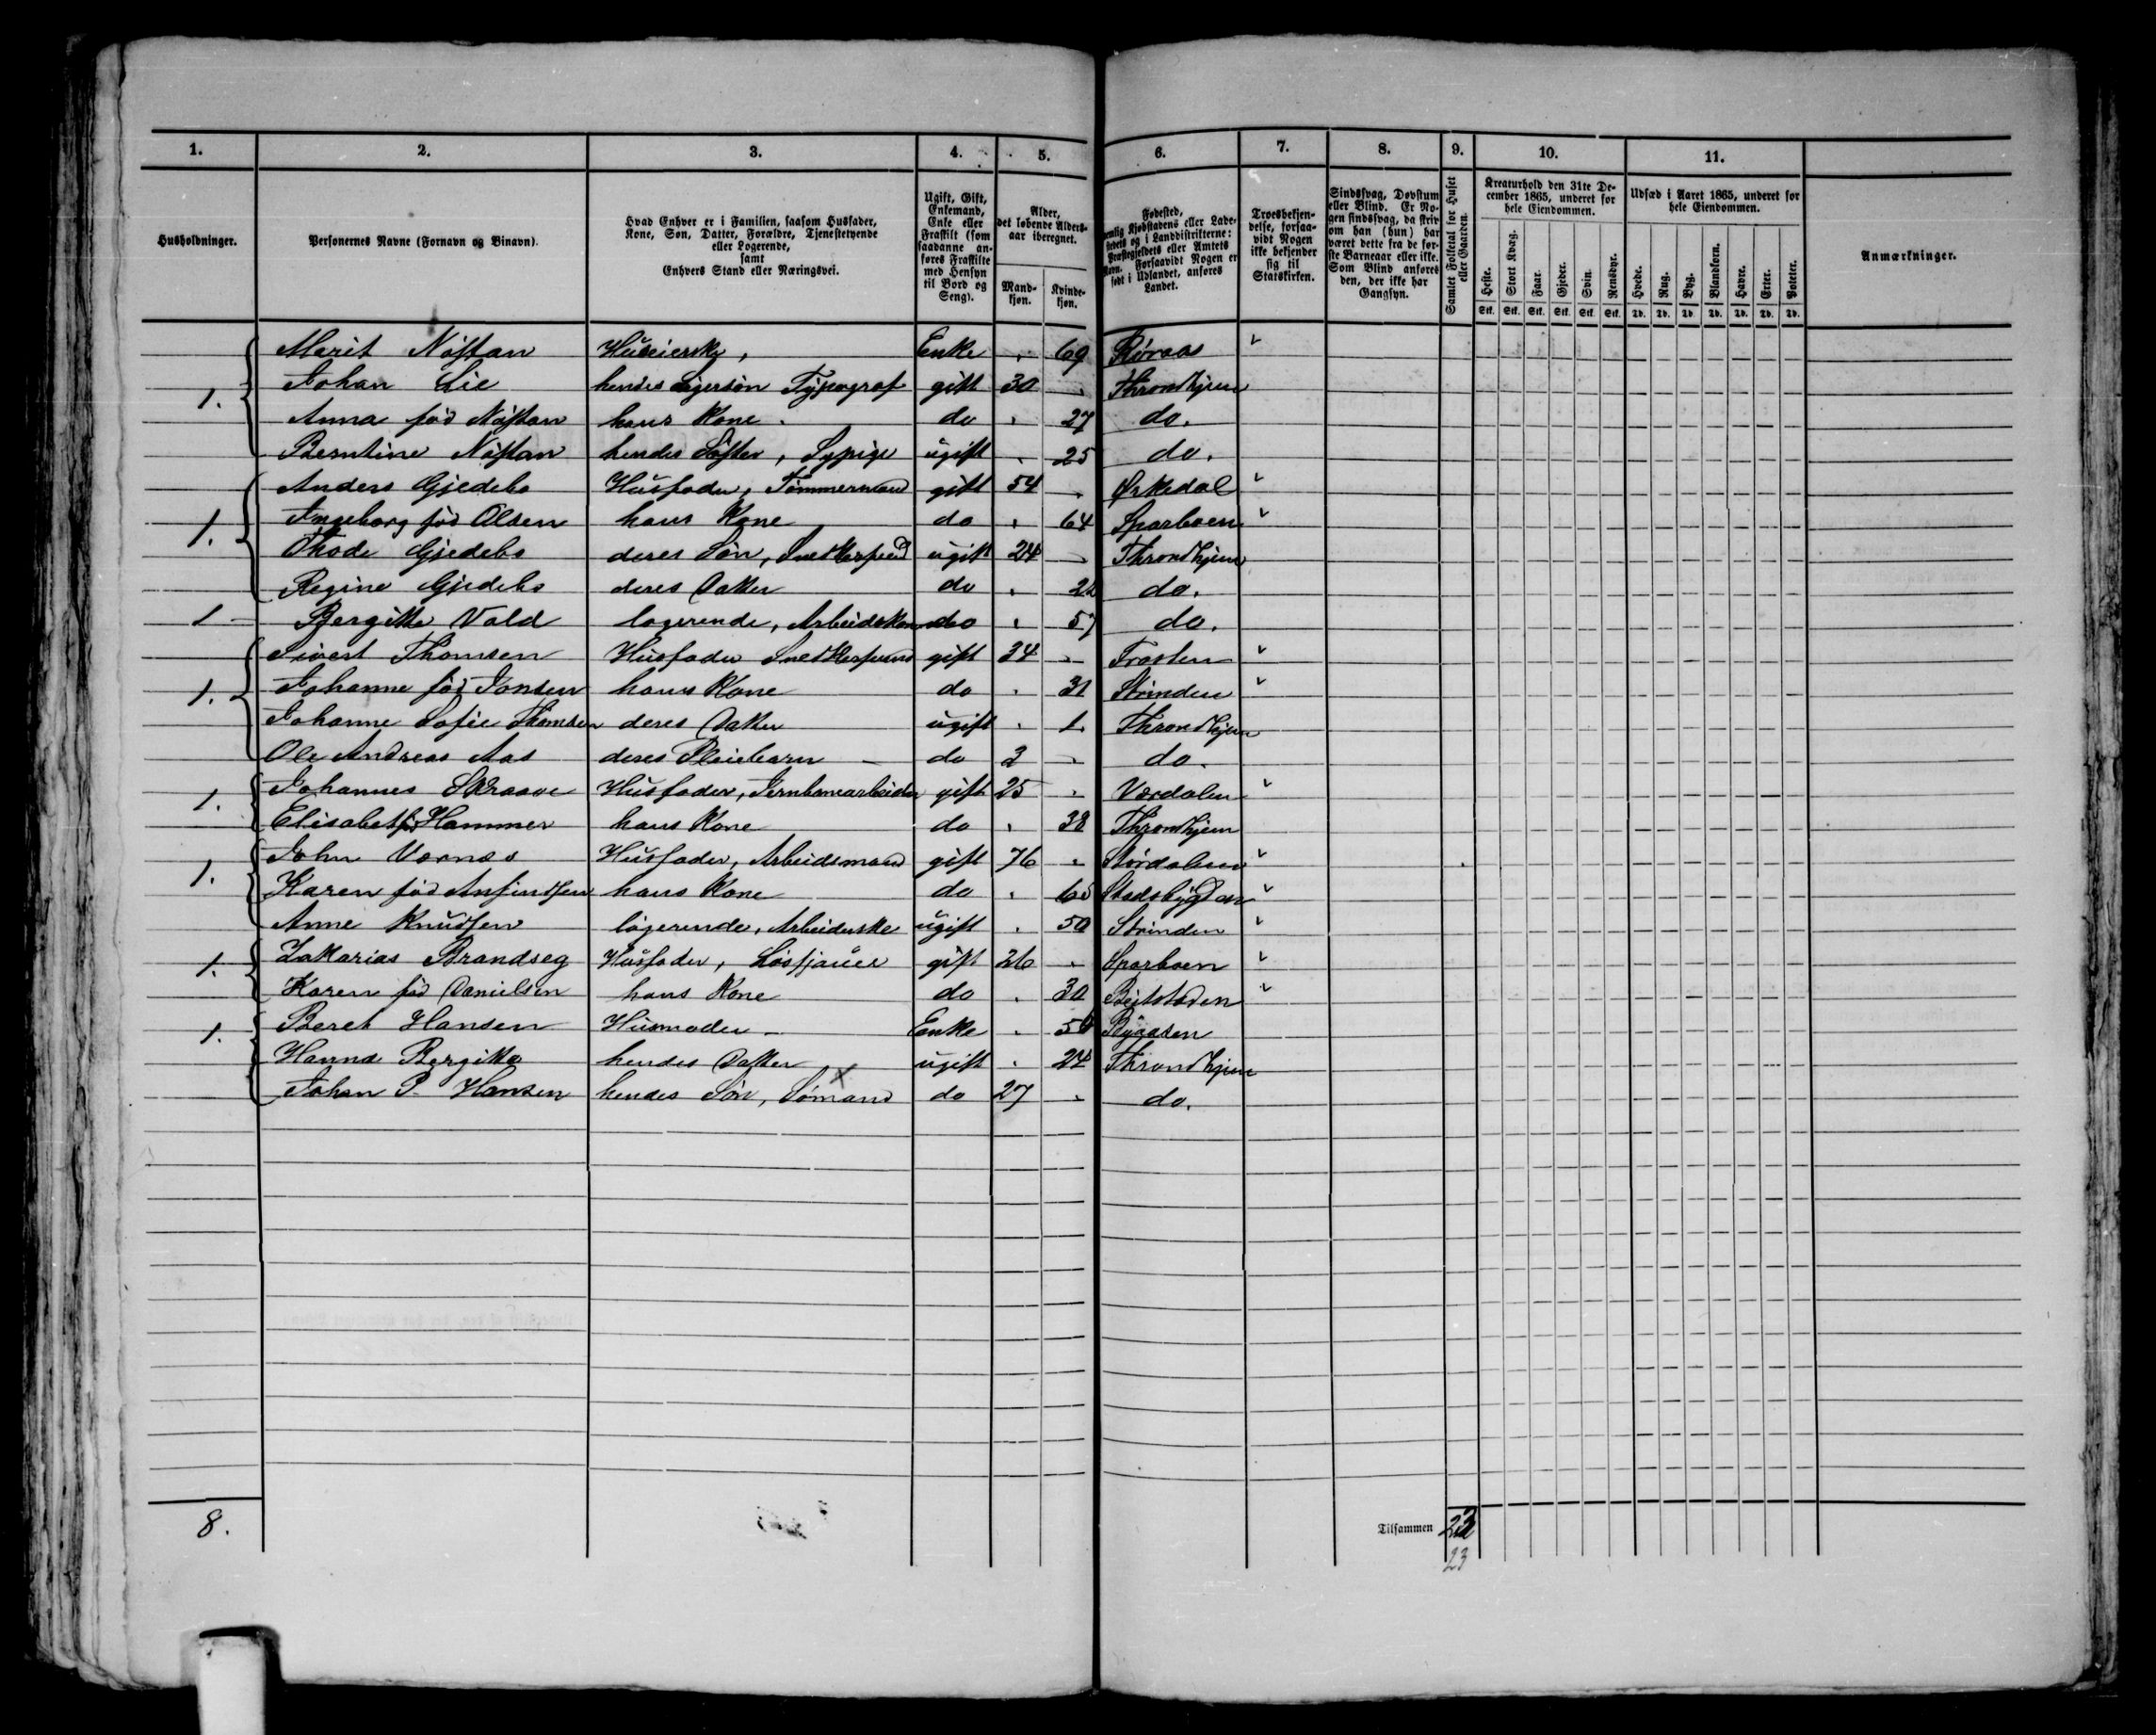 1. 2. 3. 4. 5. 6. 7. 8. 9. 10. 11.
Husholdninger.
Personernes Navne (Fornavn og Binavn).
Hvad Enhver er i Familien, saasom Husfader,
Kone, Søn, Datter, Forældre, Tjenestetyende
eller Logerende,
samt
Enhvers Stand eller Næringsvei.
Ugift, Gift,
Enkemand,
Enke eller
Fraskilt (som
saadanne an-
føres Fraskilte
med Hensyn
til Bord og
Seng).
Alder,
det løbende Alders-
aar iberegnet.
Mand-
kjøn.
Kvinde-
kjøn.
Fødested,
nemlig Kjøbstadens eller Lade-
stedets og i Landdistrikterne:
Præstegjeldets eller Amtets
Navn. Forsaavidt Nogen er
født i Udlandet, anføres
Landet.
Troesbekjen-
delse, forsaa-
vidt Nogen
ikke bekjender
sig til
Statskirken.
Sindssvag, Døvstum
eller Blind. Er No-
gen sindssvag, da skriv
om han (hun) har
været dette fra de før-
ste Barneaar eller ikke.
Som Blind anføres
den, der ikke har
Gangsyn.
Samlet Folketal for Huset
eller Gaarden.
Kreaturhold den 31te De-
cember 1865, underet for
hele Eiendommen.
Heste. Stort Kvæg. Faar. Gjeder. Svin. Rensdyr.
Stk. Stk. Stk. Stk. Stk. Stk.
Udsæd i Aaret 1865, underet for
hele Eiendommen.
Hvede. Rug. Byg. Blandkorn. Havre. Erter. Poteter.
Td. Td. Td. Td. Td. Td. Td.
Anmærkninger.
Marit Nøstan Huseierske, Enke . 69 Røraas
1. Johan Lie hendes Sigersøn Typograf gift 30 . Throndhjem
Anna fød Nøstan hans Kone . do . 27 do.
Berntine Nøstan hendes Søster, Sypige ugift . 25 do.
Anders Gjedebo Husfader, Tømmermand gift 54 . Ørkedal
1. Ingeborg fød Olsen hans Kone do . 64 Sparboen
Thode Gjedebo deres Søn, Snedkersvend ugift 24 . Throndhjem
Regine Gjedebo deres Datter do . 22 do.
1 Bergitte Vold logerende, Arbeidskone do . 57 do.
Sivert Thomsen Husfader Snedkersvend gift 34 . Frosten
1. Johanne fød Jonsen hans Kone do . 31 Strinden
Johanne Sofie Thomsen deres Datter ugift . 1 Throndhjem
Ole Andreas Aas deres Pleiebarn do 3 . do.
1. Johannes Skraave Husfader, Jernbanearbeider gift 25 . Værdalen
Elisabet fød Hammer hans Kone do . 38 Throndhjem
1. John Værnæs Husfader, Arbeidsmand gift 76 . Størdalen
Karen fød Anfindsen hans Kone do . 65 Stadsbygden
Anne Knudsen logerende, Arbeiderske ugift . 50 Strinden
1. Zakarias Brandseg Husfader, Løsfjauer gift 26 . Sparboen
Karen fød Danielsen hans Kone do . 30 Beitstaden
1. Beret Hansen Husmoder Enke . 56 Bynæsen
Hanna Bergitta hendes Datter ugift . 24 Throndhjem
Johan P. Hansen hendes Søn, Sømand do 27 . do.
8.
Tilsammen 23
23